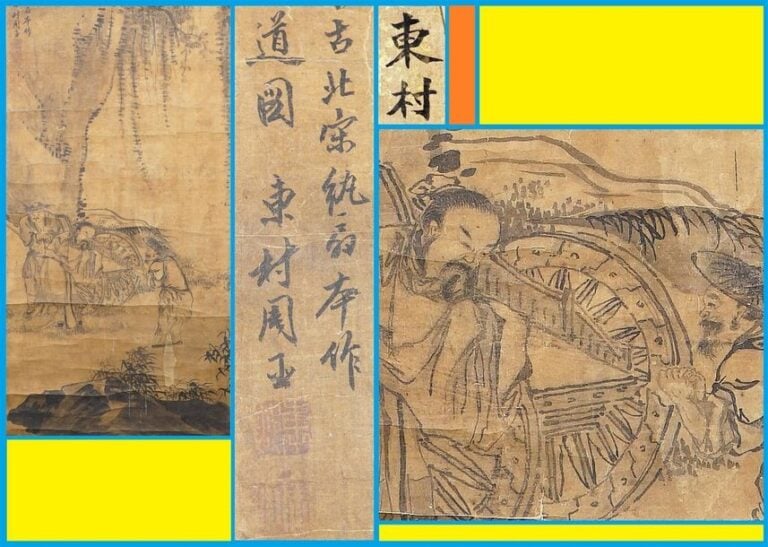 古北宋紈扇本作
道圖 東村周臣
東村